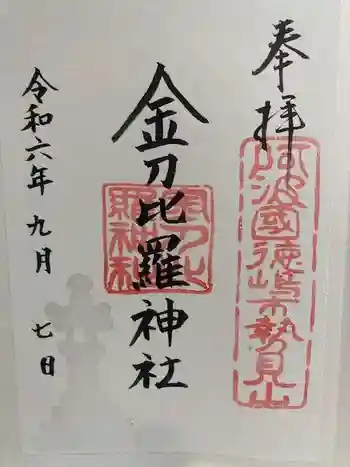 奉拝
阿波國徳嶋市勢見山
金刀比羅神社
金刀比羅神社
令和六年九月七日